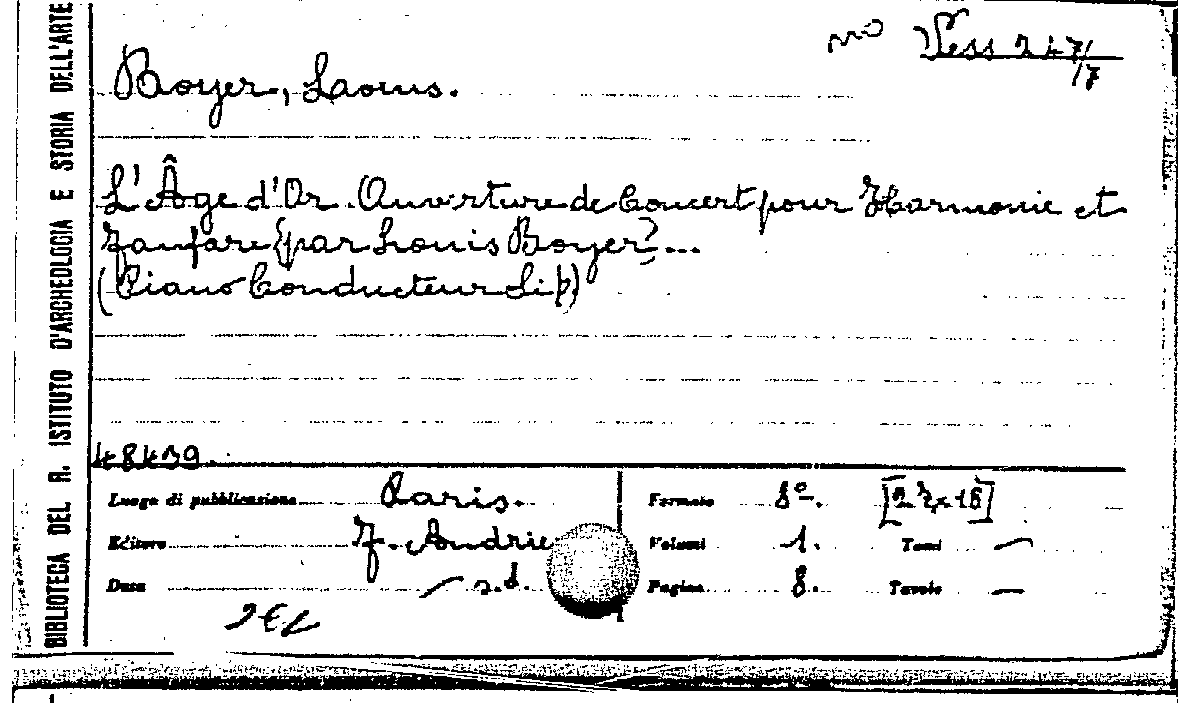 BIBLIOTECA DEL R. ISTITUTO D'ARCHEOLOGIA E STORIA DELL'ARTE
Vess 247/7
Boyer, Laouis.
L'Âge d'Or. Ouverture de Concert pour Harmonie et
Fanfare {par Louis Boyer? ...
(Piano Conducteur Si b)
48439
Luogo di pubblicazione Paris. Formato 8º. [27x18]
Editore F. Andrie Volumi 1. Tomi —
Data — s.d. Pagine 8. Tavole —